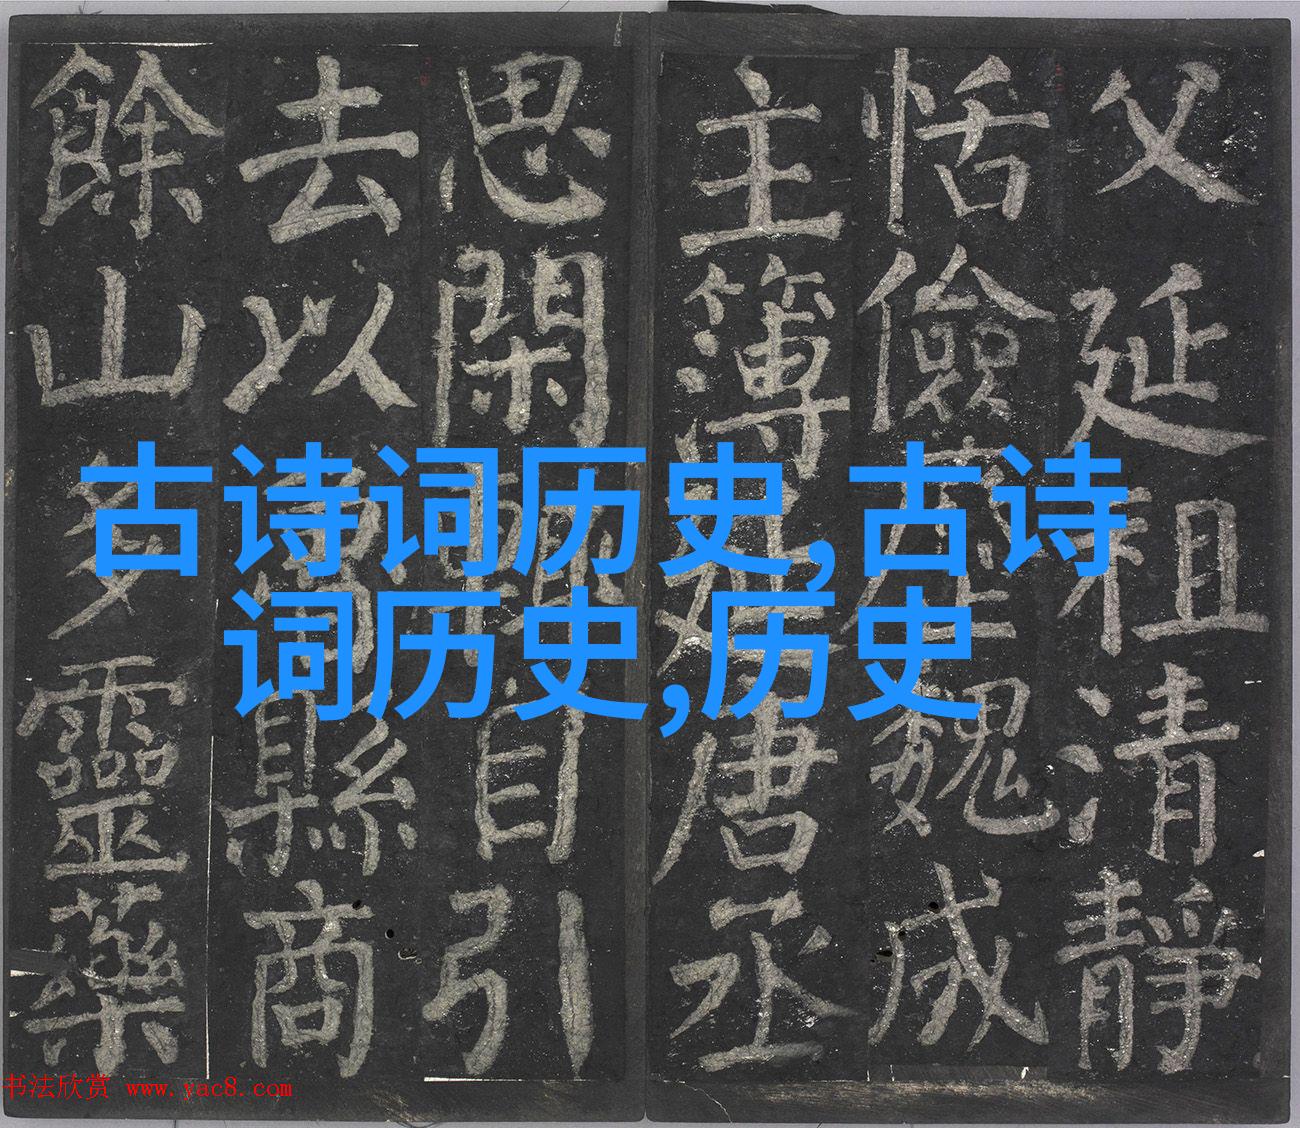 父延祖清靜
恬儉歷魏成
主簿延唐丞
思閑輒自引
去以魯縣商
餘山多靈藥
古诗词历史,古诗
词历史,历史
书法欣赏 www.yac8.com